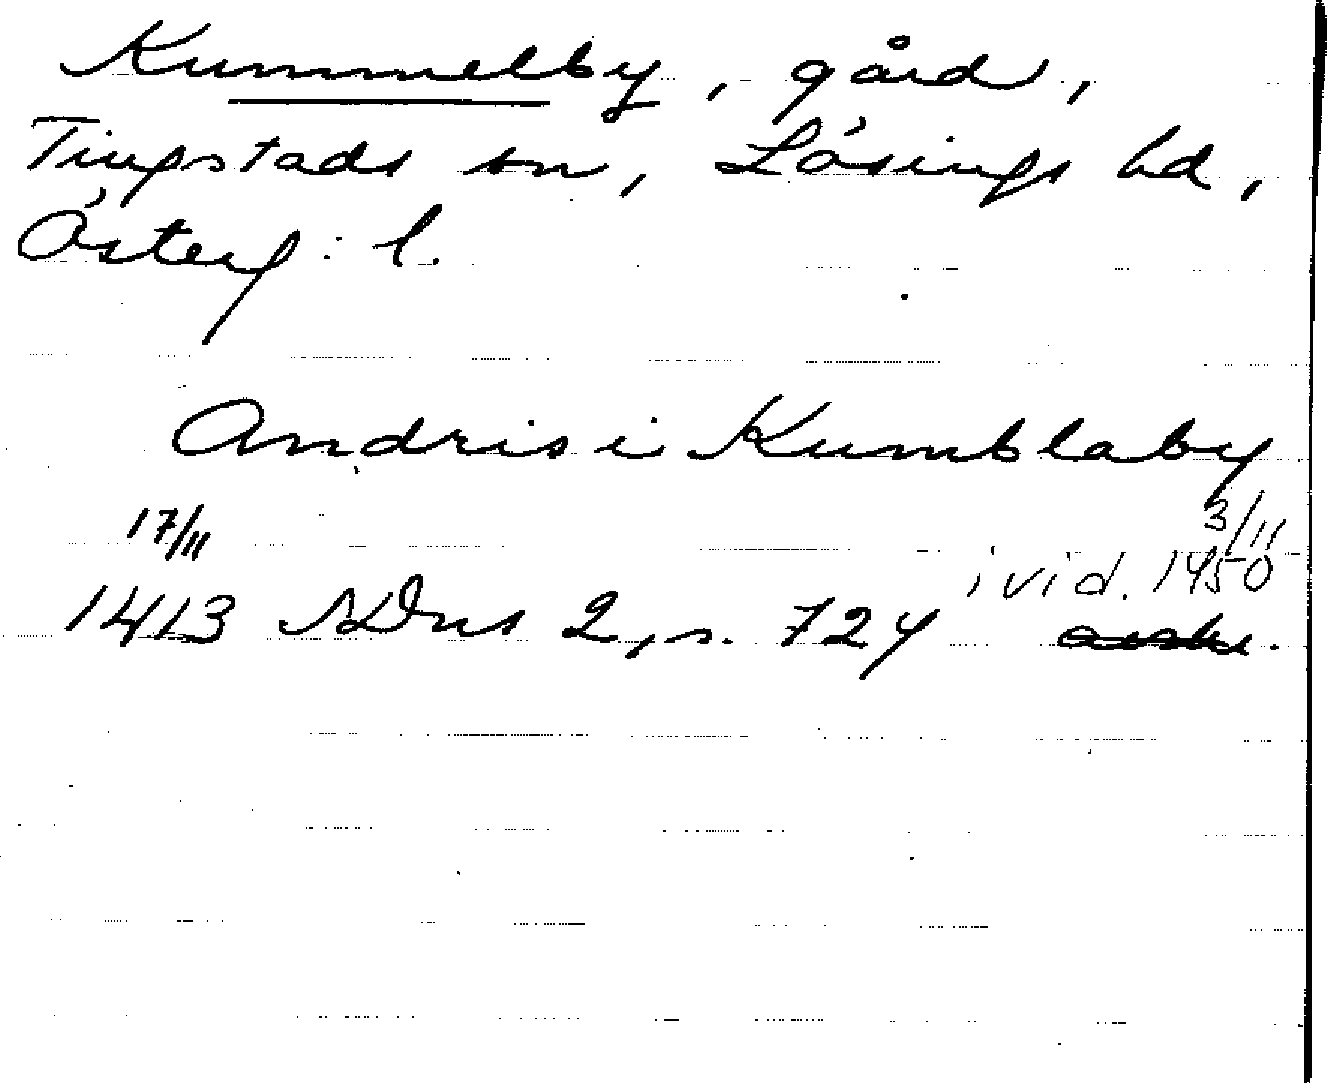 Kummelby, gård,
Tingstads sn, Lösings hd,
Österg: l.
Andris i Kumblaby
17/11 3/11
1413 SDns 2, s. 724 i vid. 1450